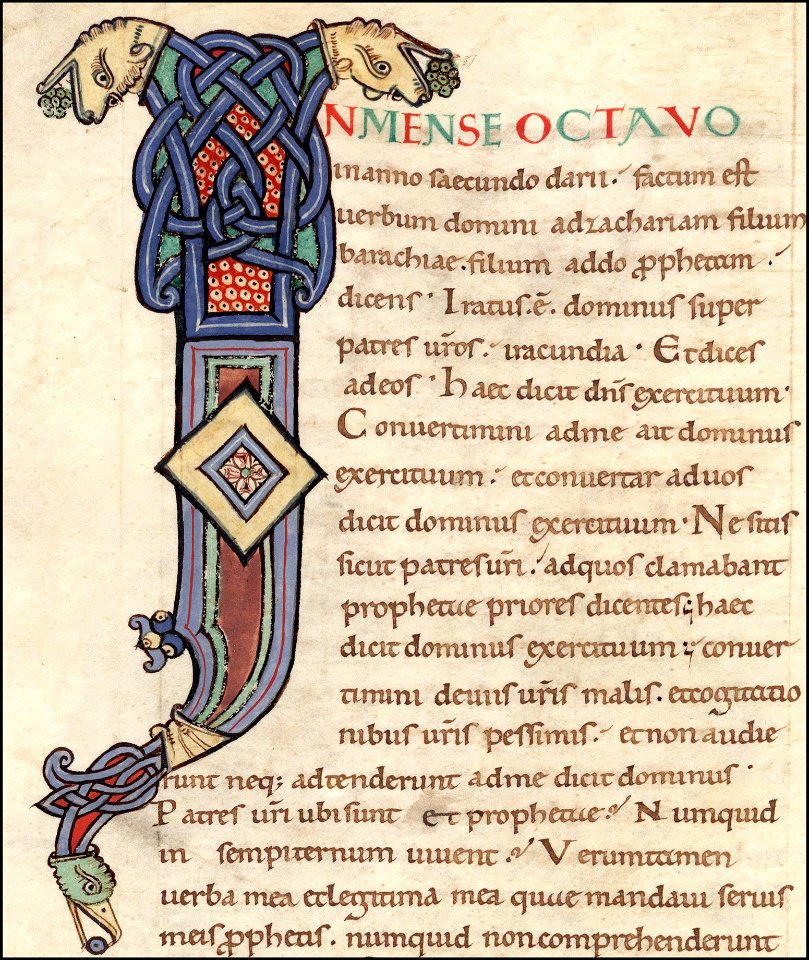 INMENSE OCTAVO
inanno saecundo darii. factum est
uerbum domini adzachariam filium
barachiae. filium addo ꝓphetam.
dicens. Iratus. ē. dominus super
patres ur̄os. iracundia. Etdices
adeos. Haec dicit dn̄s exercituum.
Conuertimini adme ait dominus
exercituum. etconuertar aduos
dicit dominus exercituum. Nesitis
sicut patresur̄i. adquos clamabant
prophetae priores dicentes; haec
dicit dominus exercituum; conuer
timini deuiisur̄is malis. etcogitatio
nibus ur̄is pessimis. etnonaudie
runt neq; adtenderunt adme dicit dominus.
Patres ur̄i ubisunt et prophetae. Numquid
in sempiternum uiuent. Verumtamen
uerba mea etlegitima mea quae mandaui seruis
meisꝓphetis. numquid noncomprehenderunt